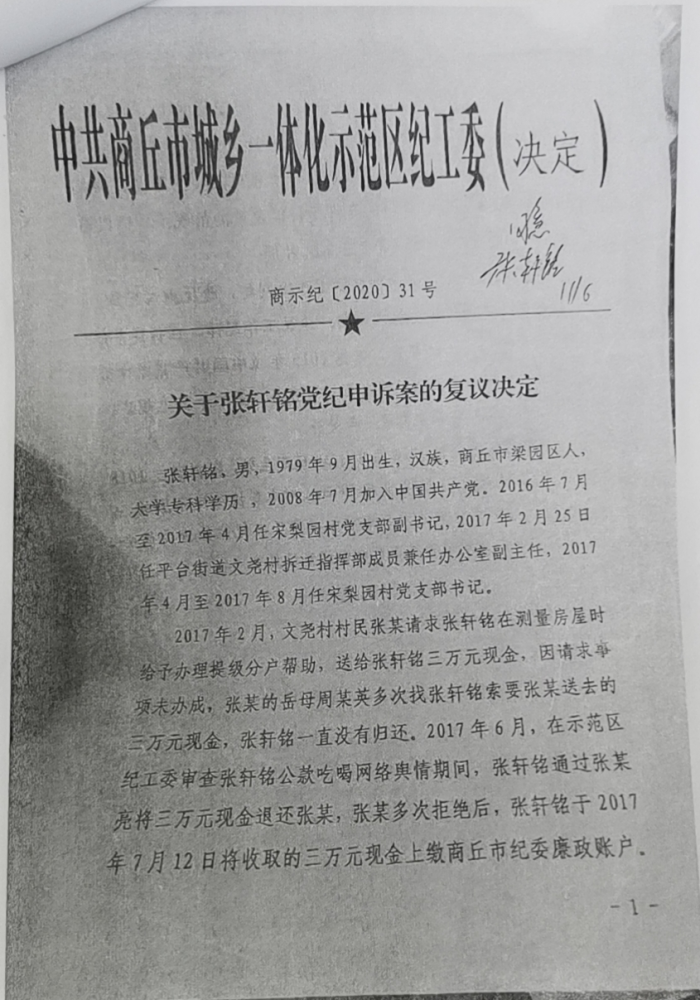 中共商丘市城乡一体化示范区纪工委(决定)
张轩铭
11/6
商示纪〔2020〕31号
关于张轩铭党纪申诉案的复议决定
张轩铭、男,1979年9月出生,汉族,商丘市梁园区人,
大学专科学历,2008年7月加入中国共产党。2016年7月
至2017年4月任宋梨园村党支部副书记,2017年2月25日
任平台街道文尧村拆迁指挥部成员兼任办公室副主任,2017
年4月至2017年8月任宋梨园村党支部书记。
2017年2月,文尧村村民张某请求张轩铭在测量房屋时
给予办理提级分户帮助,送给张轩铭三万元现金,因请求事
项未办成,张某的岳母周某英多次找张轩铭索要张某送去的
三万元现金,张轩铭一直没有归还。2017年6月,在示范区
纪工委审查张轩铭公款吃喝网络舆情期间,张轩铭通过张某
亮将三万元现金退还张某,张某多次拒绝后,张轩铭于2017
年7月12日将收取的三万元现金上缴商丘市纪委廉政账户。
-1-